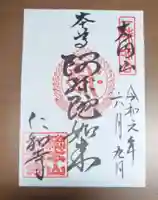 大内山
令和元年
六月九日
本尊
阿弥陀如来
仁和寺